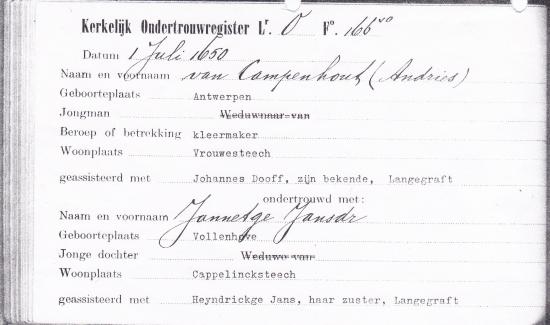 Kerkelijk Ondertrouwregister Lr. O Fo. 166vo
Datum 1 Juli 1650
Naam en voornaam van Campenhout (Andries)
Geboorteplaats Antwerpen
Jongman Weduwnaar van
Beroep of betrekking kleermaker
Woonplaats Vrouwesteech
geassisteerd met Johannes Dooff, zijn bekende, Langegraft
ondertrouwd met:
Naam en voornaam Jannetge Jansdr
Geboorteplaats Vollenhove
Jonge dochter Weduwe van
Woonplaats Cappelincksteech
geassisteerd met Heyndrickge Jans, haar zuster, Langegraft